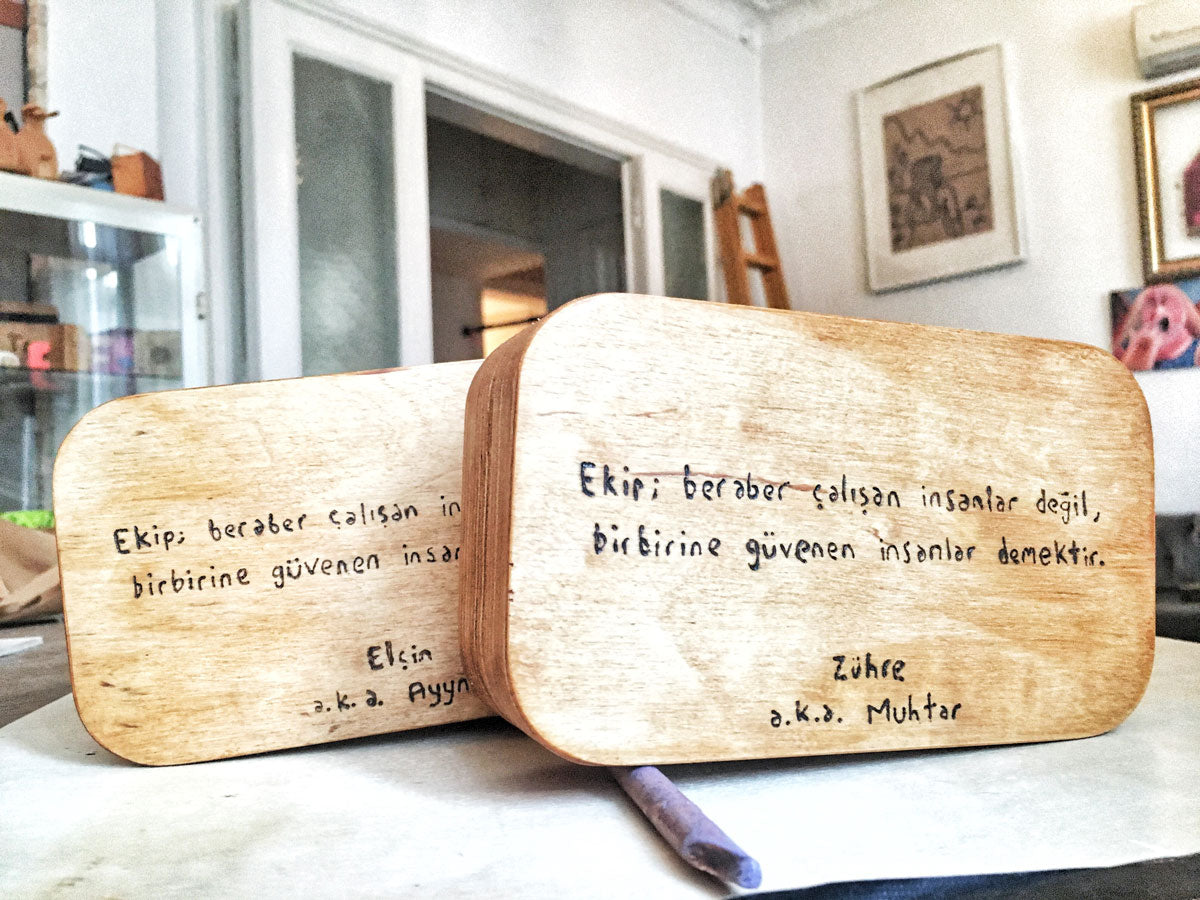 Ekip; beraber çalışan in
birbirine güvenen insan
Elçin
a.k.a. Ayyn
Ekip; beraber çalışan insanlar değil,
birbirine güvenen insanlar demektir.
Zühre
a.k.a. Muhtar